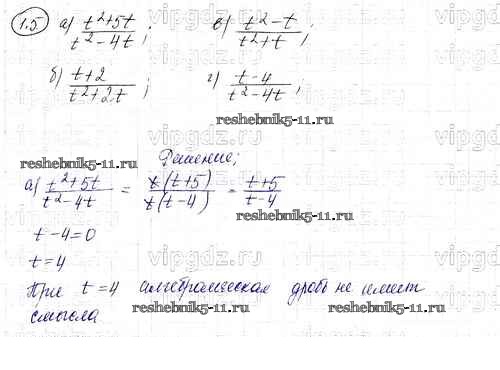 1.5 а) (t²+5t)/(t²-4t); в) (t²-t)/(t²+t);
б) (t+2)/(t²+2t); г) (t-4)/(t²-4t);
reshebnik5-11.ru
reshebnik5-11.ru
Решение;
а) (t²+5t)/(t²-4t) = (t(t+5))/(t(t-4)) = (t+5)/(t-4)
reshebnik5-11.ru
t-4=0
t=4
При t=4 алгебраическая дробь не имеет
смысла
reshebnik5-11.ru
reshebnik5-11.ru
vipgdz.ru